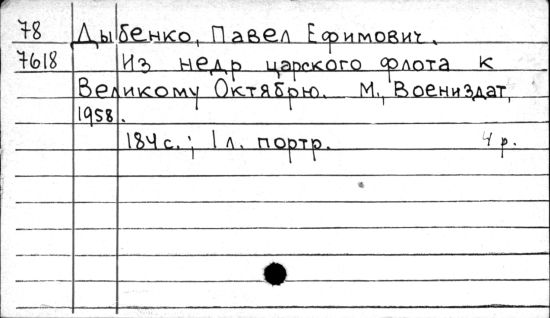 78 Дыбенко, Павел Ефимович.
7618 Из недр царского флота к
Великому Октябрю. М., Воениздат,
1958.
184 с.; 1 л. портр. 4 р.